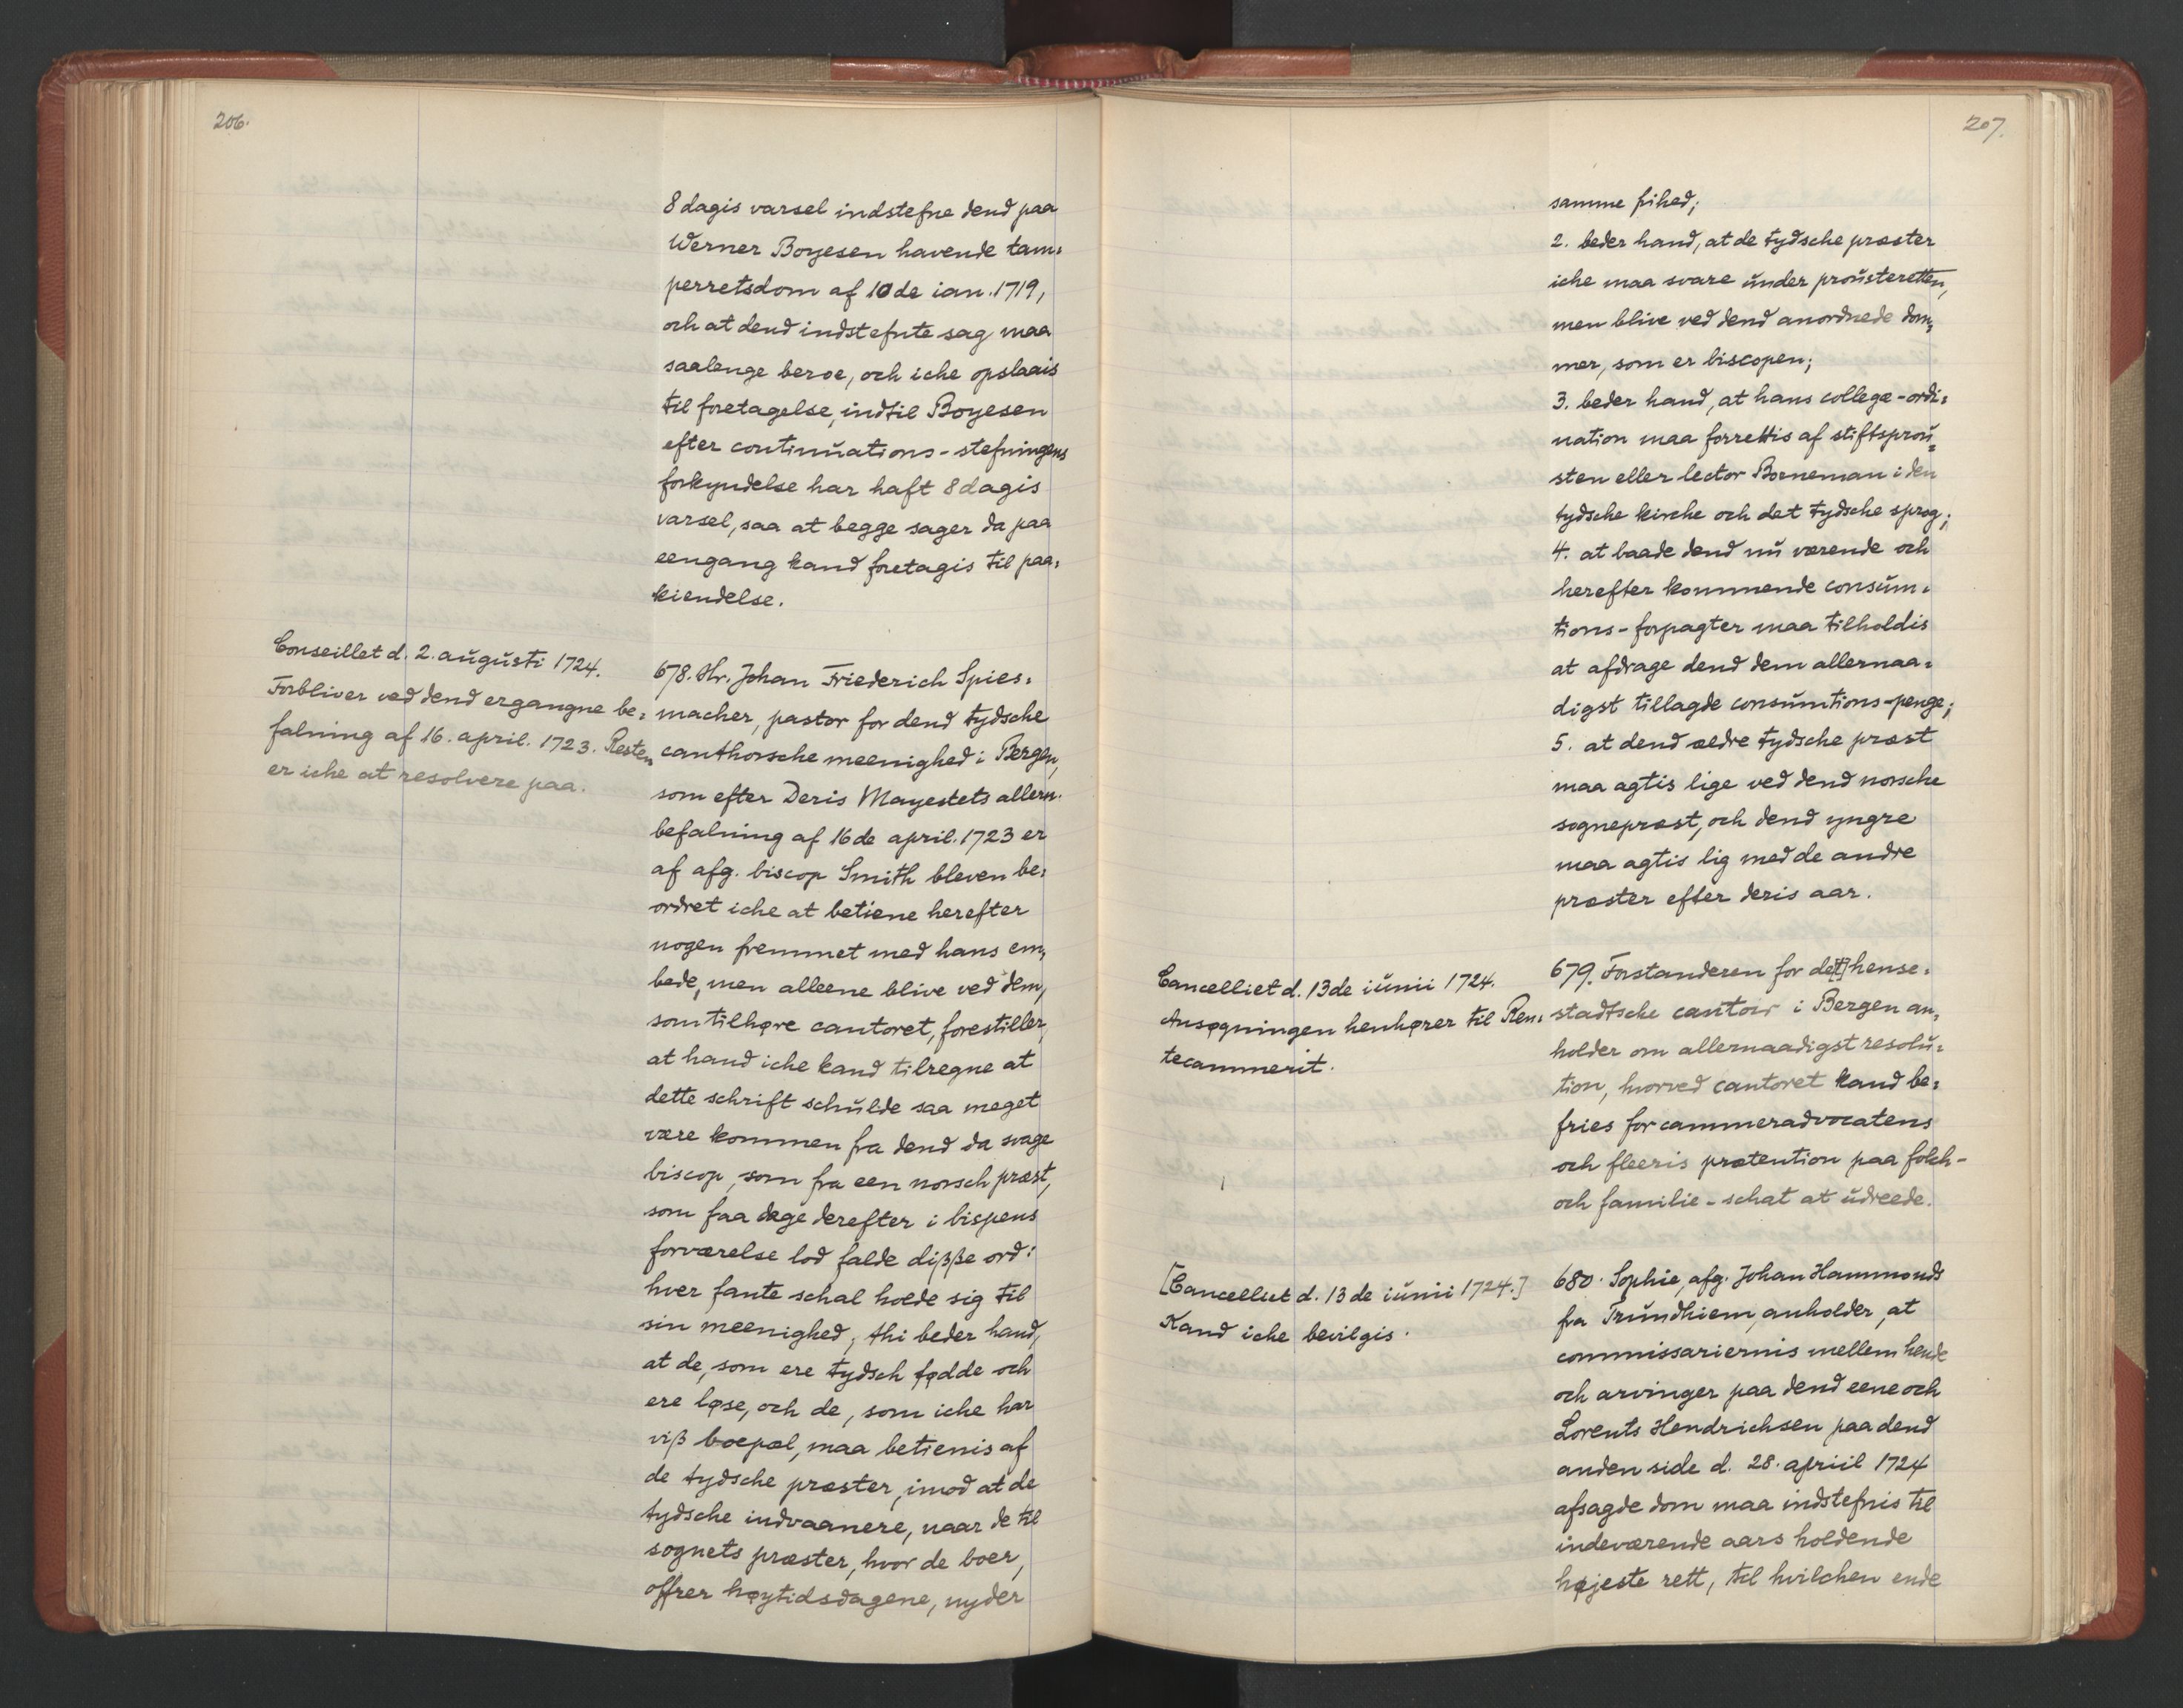 206.
8 dagis varsel indstefne dend paa
Werner Boyesen havende tam=
perretsdom af 10de ian. 1719,
och at dend indstefnte sag maa
saalenge beroe, och iche opslaais
til foretagelse, indtil Boyesen
efter continŭations-stefningens
forkyndelse har haft 8 dagis
varsel, saa at begge sager da paa
eengang kand foretagis til paa=
kiendelse.
Conseillet d. 2. augŭsti 1724.
Forbliver ved dend ergangne be=
falning af 16. april. 1723. Resten
er iche at resolvere paa.
678. Hr. Johan Friederich Spies=
macher, pastor for dend tydsche
canthorsche meenighed i Bergen,
som efter Deris Mayestets allern.
befalning af 16de april. 1723 er
af afg. biscop Smith bleven be=
ordret iche at betiene herefter
nogen fremmet med hans em=
bede, men alleene blive ved dem,
som tilhøre cantoret, forestiller,
at hand iche kand tilregne at
dette schrift schŭlde saa meget
være kommen fra dend da svage
biscop, som fra een norsch præst,
som faa dage derefter i bispens
forværelse lod falde dißße ord:
hver fante schal holde sig til
sin meenighed, thi beder hand,
at de, som ere tydsch fødde och
ere løse, och de, som iche har
viß boepæl, maa betienis af
de tydsche præster, imod at de
tydsche indvaanere, naar de til
sognets præster, hvor de boer,
offrer høytidsdagene, nyder
207.
samme frihed;
2. beder hand, at de tydsche præster
iche maa svare ŭnder proŭsteretten,
men blive ved dend anordnede dom=
mer, som er biscopen;
3. beder hand, at hans collegæ-ordi=
nation maa forrettis af stiftsproŭ=
sten eller lector Borneman i den
tydsche kirche och det tydsche sprog;
4. at baade dend nŭ værende och
herefter kommende consŭm=
tions-forpagter maa tilholdis
at afdrage dend dem allernaa=
digst tillagde consŭmtions-penge;
5. at dend ældre tydsche præst
maa agtis lige ved dend norsche
sognepræst, och dend yngre
maa agtis lig med de andre
præster efter deris aar.
Cancelliet d. 13de iŭnii 1724.
Ansøgningen henhører til Ren=
tecammerit.
679. Forstanderen for de[t] hense=
stadtsche cantoir i Bergen an=
holder om allernaadigst resolŭ=
tion, hvorved cantoret kand be=
fries for cammeradvocatens
och fleeris prætention paa folch-
och familie-schat at ŭdreede.
[Cancelliet d. 13de iŭnii 1724.]
Kand iche bevilgis.
680. Sophie, afg. Johan Hammonds
fra Trŭndhiem, anholder, at
commissariernis mellem hende
och arvinger paa dend eene och
Lorents Hendrichsen paa dend
anden side d. 28. apriil 1724
afsagde dom maa indstefnis til
indeværende aars holdende
højeste rett, til hvilchen ende